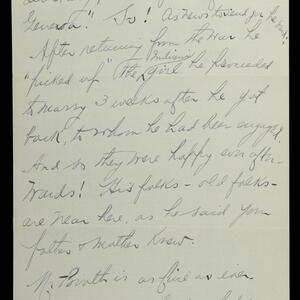 General." So! As news to end for he
After returning from the War he
"picked up" the girl he proceeded
to marry 3 weeks after he got
back, to whom he had been engaged.
And so they were happy ever after-
wards! His folks - old folks -
are near here, as he said you
father & mother knew.
is as fine as ever